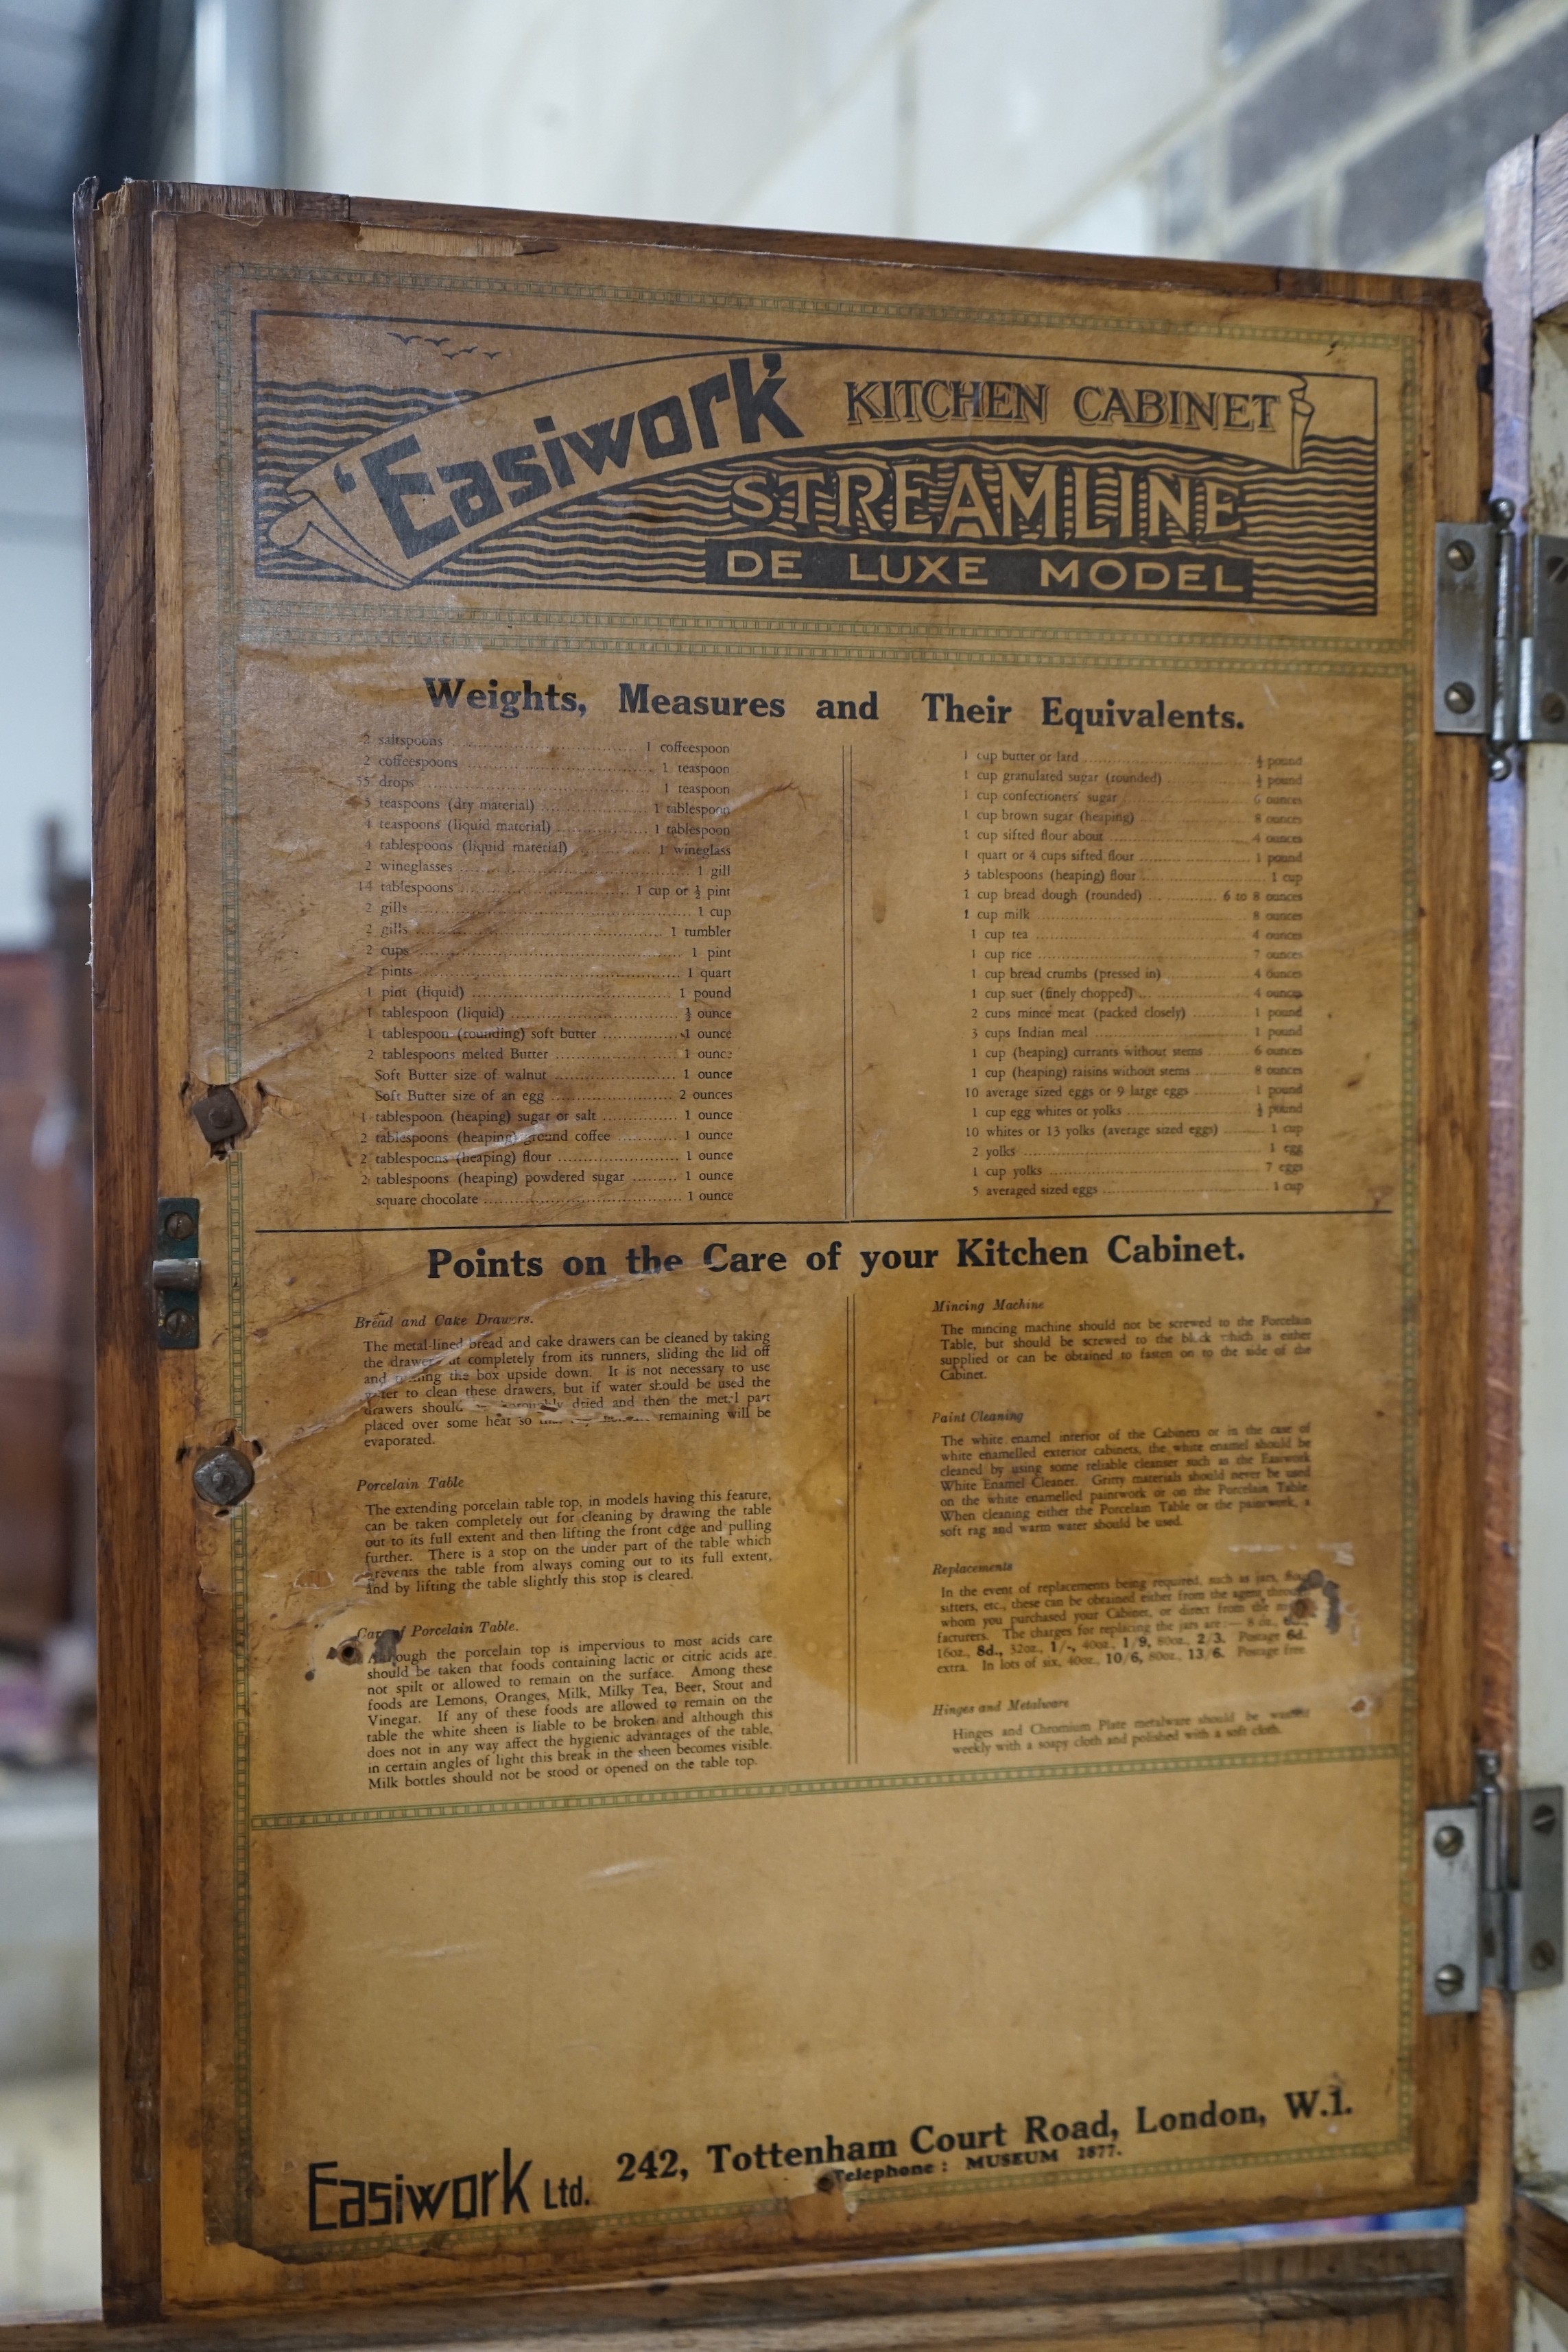 'Easiwork' KITCHEN CABINET
STREAMLINE
DE LUXE MODEL
Weights, Measures and Their Equivalents.
2 saltspoons ........ 1 coffeespoon
2 coffeespoons ........ 1 teaspoon
55 drops ........ 1 teaspoon
3 teaspoons (dry material) ........ 1 tablespoon
4 teaspoons (liquid material) ........ 1 tablespoon
4 tablespoons (liquid material) ........ 1 wineglass
2 wineglasses ........ 1 gill
14 tablespoons ........ 1 cup or ½ pint
2 gills ........ 1 cup
2 gills ........ 1 tumbler
2 cups ........ 1 pint
2 pints ........ 1 quart
1 pint (liquid) ........ 1 pound
1 tablespoon (liquid) ........ ½ ounce
1 tablespoon (rounding) soft butter ........ 1 ounce
2 tablespoons melted Butter ........ 1 ounce
Soft Butter size of walnut ........ 1 ounce
Soft Butter size of an egg ........ 2 ounces
1 tablespoon (heaping) sugar or salt ........ 1 ounce
2 tablespoons (heaping) ground coffee ........ 1 ounce
2 tablespoons (heaping) flour ........ 1 ounce
2 tablespoons (heaping) powdered sugar ........ 1 ounce
square chocolate ........ 1 ounce
1 cup butter or lard ........ ½ pound
1 cup granulated sugar (rounded) ........ ½ pound
1 cup confectioners' sugar ........ 6 ounces
1 cup brown sugar (heaping) ........ 8 ounces
1 cup sifted flour about ........ 4 ounces
1 quart or 4 cups sifted flour ........ 1 pound
3 tablespoons (heaping) flour ........ 1 cup
1 cup bread dough (rounded) ........ 6 to 8 ounces
1 cup milk ........ 8 ounces
1 cup tea ........ 4 ounces
1 cup rice ........ 7 ounces
1 cup bread crumbs (pressed in) ........ 4 ounces
1 cup suet (finely chopped) ........ 4 ounces
2 cups mince meat (packed closely) ........ 1 pound
3 cups Indian meal ........ 1 pound
1 cup (heaping) currants without stems ........ 6 ounces
1 cup (heaping) raisins without stems ........ 8 ounces
10 average sized eggs or 9 large eggs ........ 1 pound
1 cup egg whites or yolks ........ ½ pound
10 whites or 13 yolks (average sized eggs) ........ 1 cup
2 yolks ........ 1 egg
1 cup yolks ........ 7 eggs
5 averaged sized eggs ........ 1 cup
Points on the Care of your Kitchen Cabinet.
Bread and Cake Drawers.
The metal-lined bread and cake drawers can be cleaned by taking
the drawer out completely from its runners, sliding the lid off
and turning the box upside down. It is not necessary to use
water to clean these drawers, but if water should be used the
drawers should dried and then the metal part
placed over some heat so remaining will be
evaporated.
Porcelain Table
The extending porcelain table top, in models having this feature,
can be taken completely out for cleaning by drawing the table
out to its full extent and then lifting the front edge and pulling
further. There is a stop on the under part of the table which
prevents the table from always coming out to its full extent,
and by lifting the table slightly this stop is cleared.
Care of Porcelain Table.
Although the porcelain top is impervious to most acids care
should be taken that foods containing lactic or citric acids are
not spilt or allowed to remain on the surface. Among these
foods are Lemons, Oranges, Milk, Milky Tea, Beer, Stout and
Vinegar. If any of these foods are allowed to remain on the
table the white sheen is liable to be broken and although this
does not in any way affect the hygienic advantages of the table,
in certain angles of light this break in the sheen becomes visible.
Milk bottles should not be stood or opened on the table top.
Mincing Machine
The mincing machine should not be screwed to the Porcelain
Table, but should be screwed to the block which is either
supplied or can be obtained to fasten on to the side of the
Cabinet.
Paint Cleaning
The white enamel interior of the Cabinets or in the case of
white enamelled exterior cabinets, the white enamel should be
cleaned by using some reliable cleanser such as the Easiwork
White Enamel Cleaner. Gritty materials should never be used
on the white enamelled paintwork or on the Porcelain Table.
When cleaning either the Porcelain Table or the paintwork, a
soft rag and warm water should be used.
Replacements
In the event of replacements being required, such as jars, flour
sifters, etc., these can be obtained either from the agent through
whom you purchased your Cabinet, or direct from the
facturers. The charges for replacing the jars are:— 8 oz.,
16oz., 8d., 32oz., 1/-, 40oz., 1/9, 80oz., 2/3. Postage 6d.
extra. In lots of six, 40oz., 10/6, 80oz., 13/6. Postage free.
Hinges and Metalware
Hinges and Chromium Plate metalware should be washed
weekly with a soapy cloth and polished with a soft cloth.
Easiwork Ltd. 242, Tottenham Court Road, London, W.1.
Telephone: MUSEUM 2877.